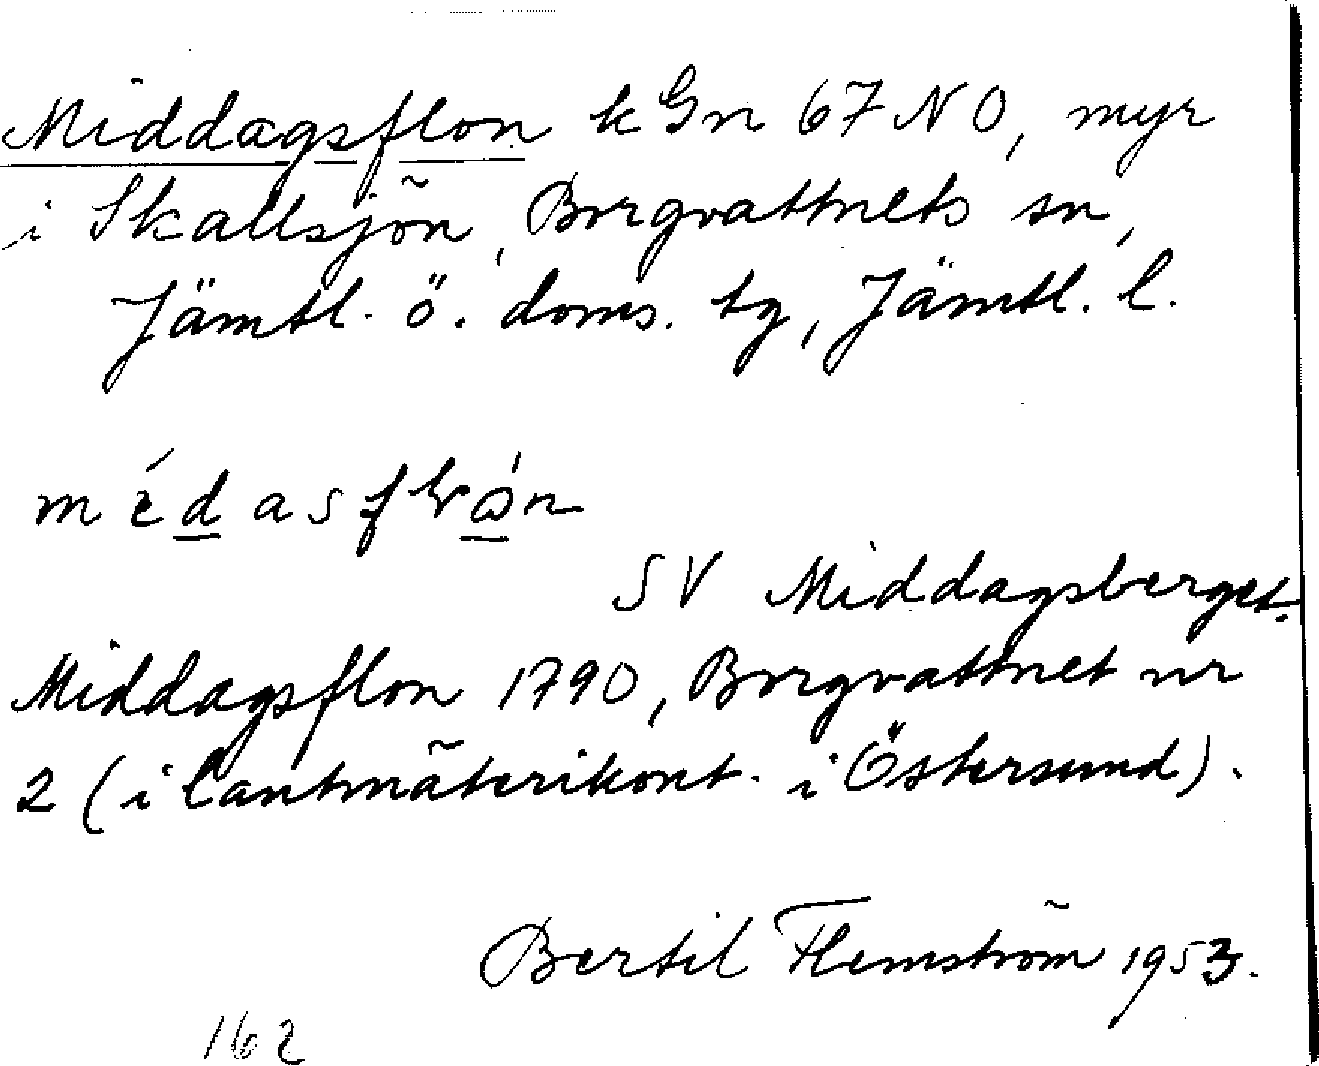 Middagsflon k Gn 67 NO, myr
i Skallsjön, Borgvattnets sn,
Jämtl. ö. doms. tg, Jämtl. l.
SV Middagsberget.
Middagsflon 1790, Borgvattnet nr
2 (i lantmäterikont. i Östersund).
Bertil Flemström 1953.
162